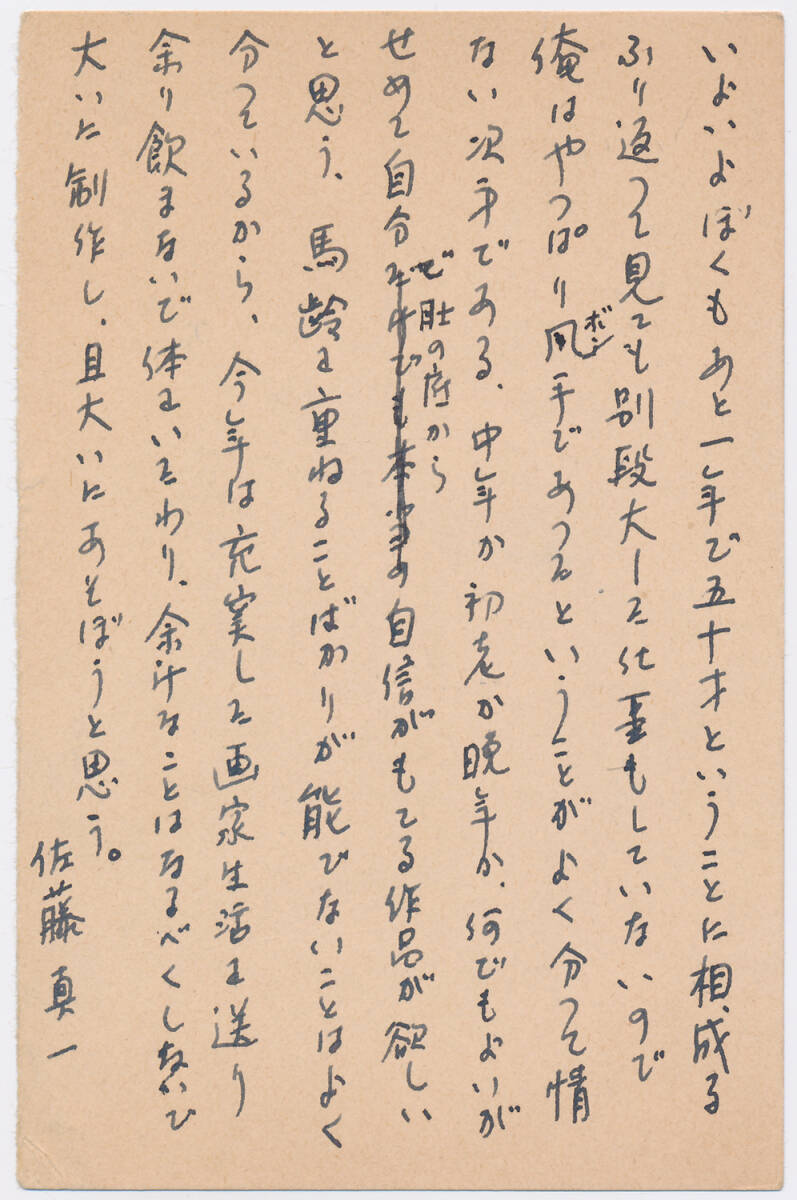 いよいよぼくもあと一年で五十才ということに相成る
ふり返って見ても別段大した仕事もしていないので
俺はやっぱり凡手であったということがよく分って情
ボン
ない次第である、中年か初老か晩年か、何でもよいが
せめて自分だけでも本当の自信がもてる作品が欲しい
で肚の底から
と思う、馬齢を重ねることばかりが能でないことはよく
分っているから、今年は充実した画家生活を送り
余り飲まないで体をいたわり、余計なことはなるべくしないで
大いに制作し、且大いにあそぼうと思う。
佐藤真一